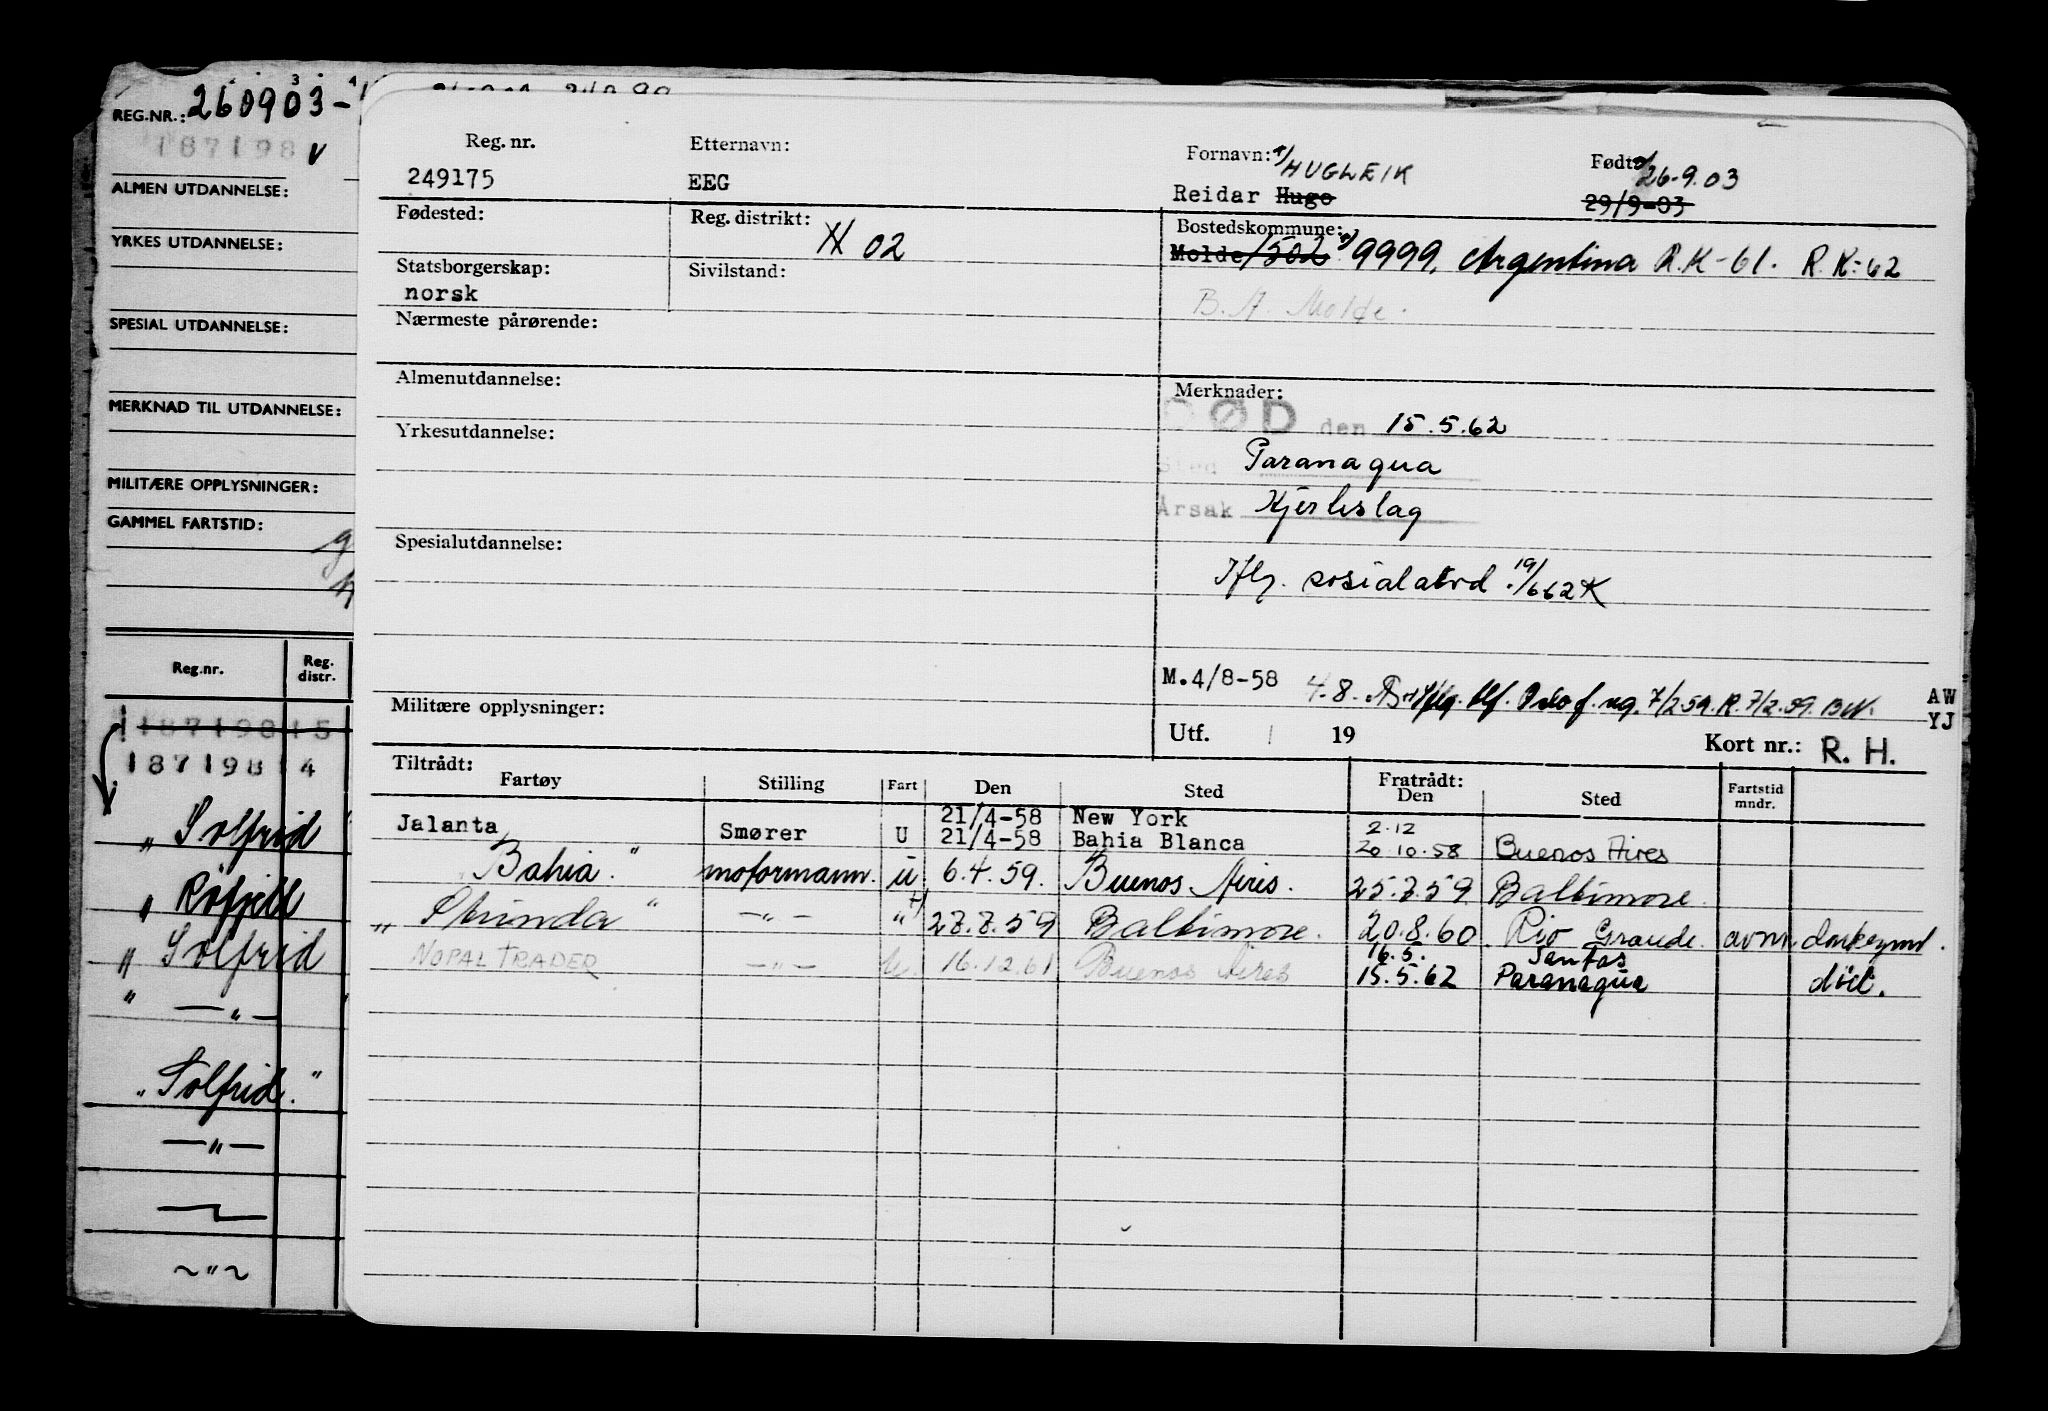 REG.NR.: 260903-
187198 v
ALMEN UTDANNELSE:
YRKES UTDANNELSE:
SPESIAL UTDANNELSE:
MERKNAD TIL UTDANNELSE:
MILITÆRE OPPLYSNINGER:
GAMMEL FARTSTID:
Reg.nr. Reg. distr.
187198 15
187198 14
" Solfrid
" Röfjell
" Solfrid
" — " —
" Solfrid "
— " —
~ " ~
Reg. nr. Etternavn: Fornavn: Født:
HUGLEIK 26.9.03
249175 EEG Reidar Hugo 29/9-03
Fødested: Reg. distrikt: 02 Bostedskommune:
Molde/502 9999, Argentina R.K-61. R.K-62
Statsborgerskap: Sivilstand:
norsk B.A. Molde.
Nærmeste pårørende:
Almenutdannelse: Merknader:
DØD den 15.5.62
Yrkesutdannelse:
Sted Paranaqua
Årsak Hjerteslag
Spesialutdannelse:
Iflg. sosialatord 19/662 K
M.4/8-58 4.8. Oslo f. ng. 7/2 59. R. 7/2.59. AW
YJ
Militære opplysninger: Utf. 19 Kort nr.: R. H.
Tiltrådt: Fratrådt:
Fartøy Stilling Fart Den Sted Den Sted Fartstid mndr.
21/4-58 New York 2.12
Jalanta Smører U 21/4-58 Bahia Blanca 20.10.58 Buenos Aires
"Bahia" motormann. u 6.4.59. Buenos Aires. 25.7.59 Baltimore.
" " — " — " 27.7.59 Baltimore. 20.8.60. Rio Grande. avm
16.5. Santos
NOPAL TRADER — " — u. 16.12.61 Buenos Aires 15.5.62 Paranaqua död.